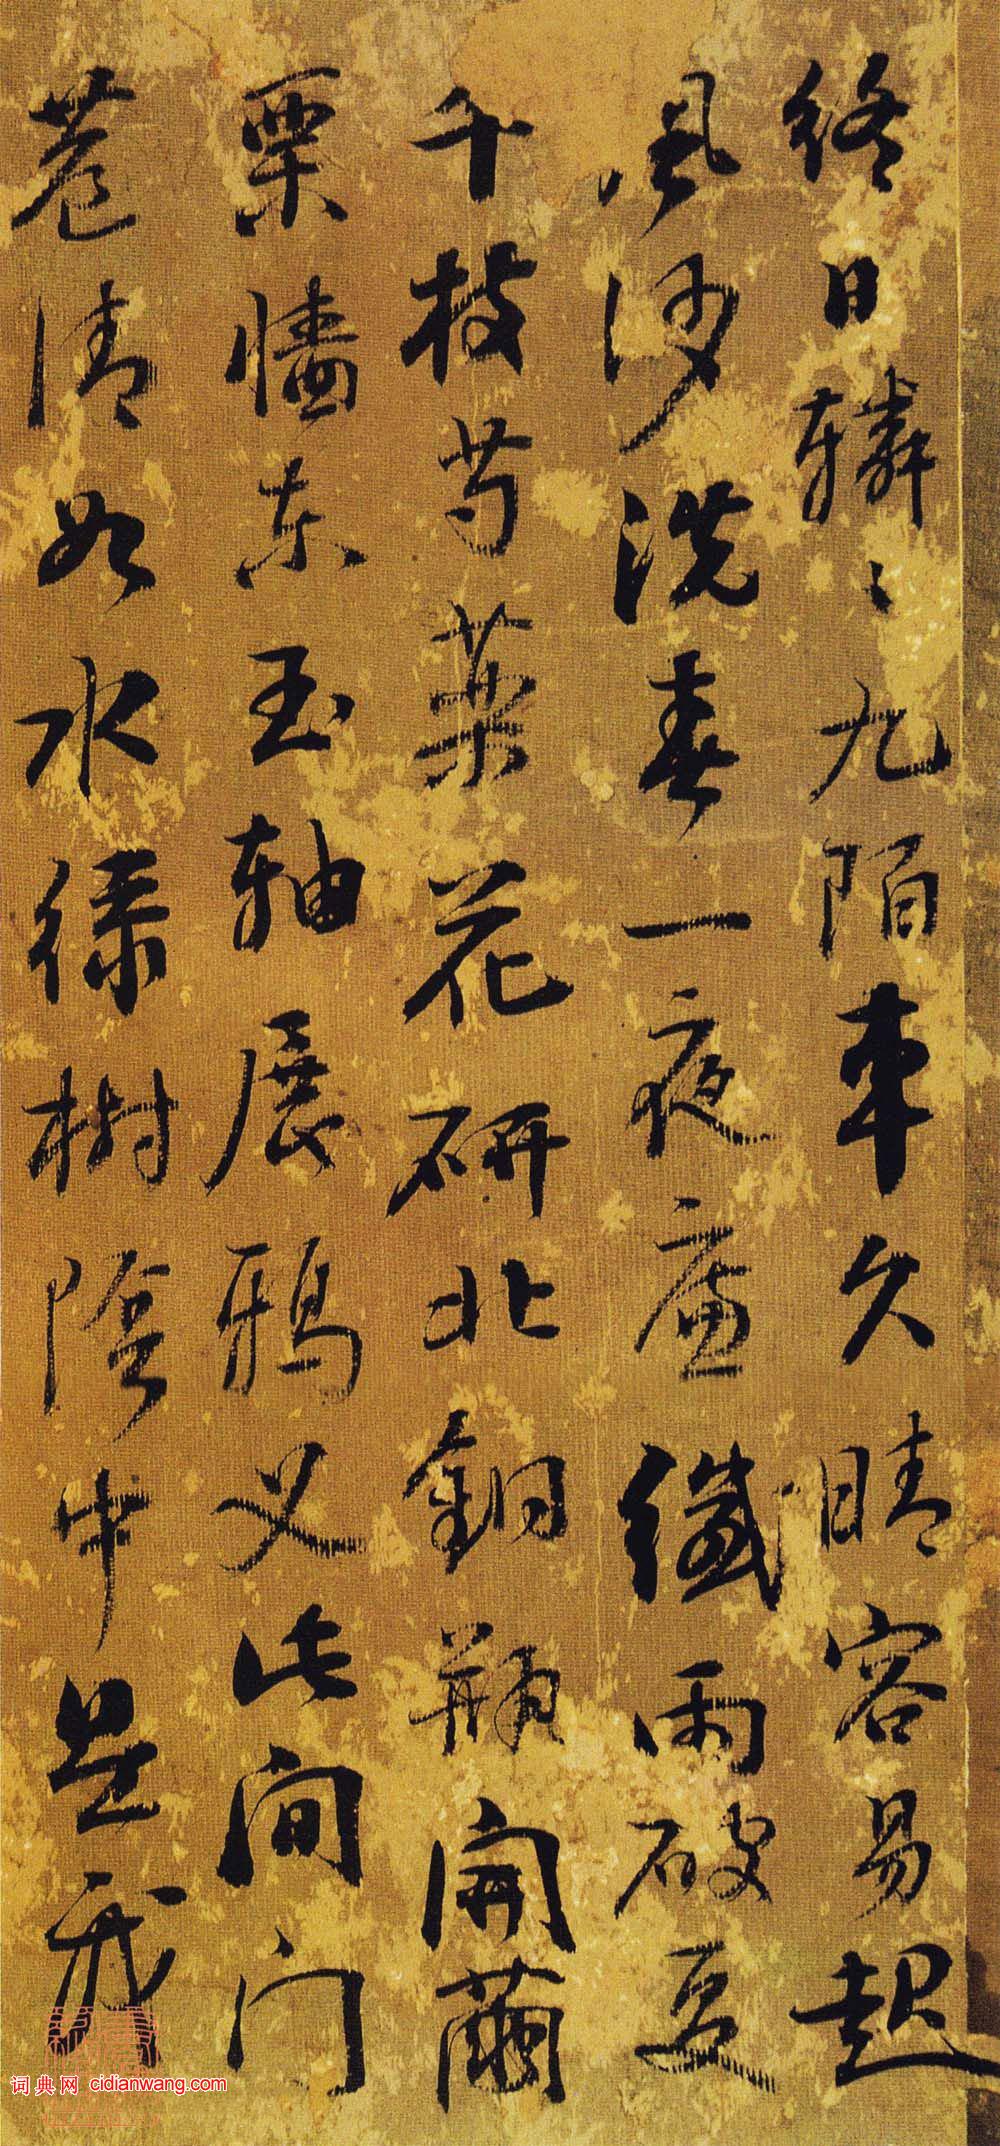 終日轔〻九陌車久晴容易起
風沙洗春一夜廉纖雨破豆
千枝芍藥花研北銅瓶開蘭
栗墻東玉軸展鴉叉此間門
巷清如水綠樹陰中是我
词典网 cidianwang.com